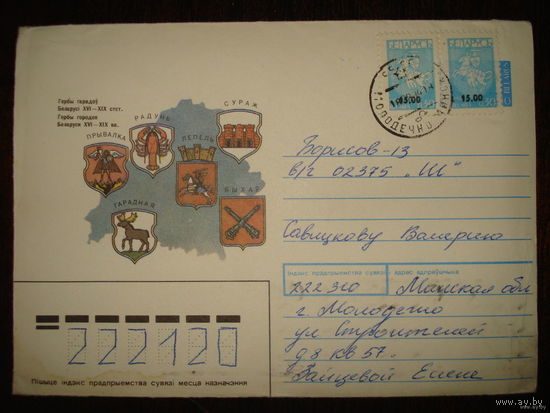 Гербы гарадоў
Беларусі XVI–XIX стст.
Гербы городов
Беларуси XVI–XIX вв.
ПРЫВАЛКА
РАДУНЬ
ЛЕПЕЛЬ
СУРАЖ
ГАРАДНАЯ
БЫХАЎ
БЕЛАРУСЬ
БЕЛАРУСЬ
15.00
15.00
МОЛОДЕЧНО
Борисов-13
в/ч 02375 „Ш"
Савицкову Валерию
Індэкс прадпрыемства сувязі і адрас адпраўшчыка
222310 Минская обл
г. Молодечно
ул Строителей
д 8 кв 57.
Зайцевой Елене
222120
Пішыце індэкс прадпрыемства сувязі месца назначэння
www.ay.by